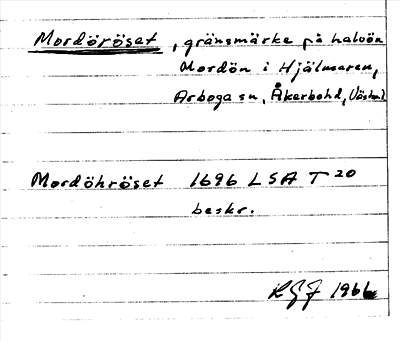 Mordöröset, gränsmärke på halvön
Mordön i Hjälmaren,
Arboga sn, Åkerbohd, Västml
Mordöhröset 1696 LSA T 20
beskr.
1966